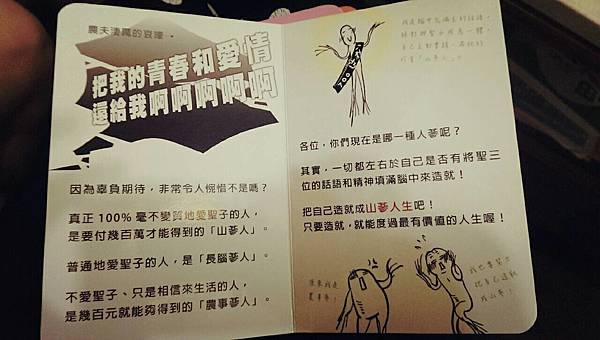 農夫淒厲的哀嚎。
把我的青春和愛情
還給我啊啊啊啊啊
因為辜負期待，非常令人惋惜不是嗎？
真正 100% 毫不變質地愛聖子的人，
是要付幾百萬才能得到的「山蔘人」。
普通地愛聖子的人，是「長腦蔘人」。
不愛聖子、只是相信來生活的人，
是幾百元就能夠得到的「農事蔘人」。
各位，你們現在是哪一種人蔘呢？
其實，一切都左右於自己是否有將聖三
位的話語和精神填滿腦中來造就！
把自己造就成山蔘人生吧！
只要造就，就能度過最有價值的人生喔！
原來我是
農事蔘！
我也要努力
把自己造就
成山蔘！